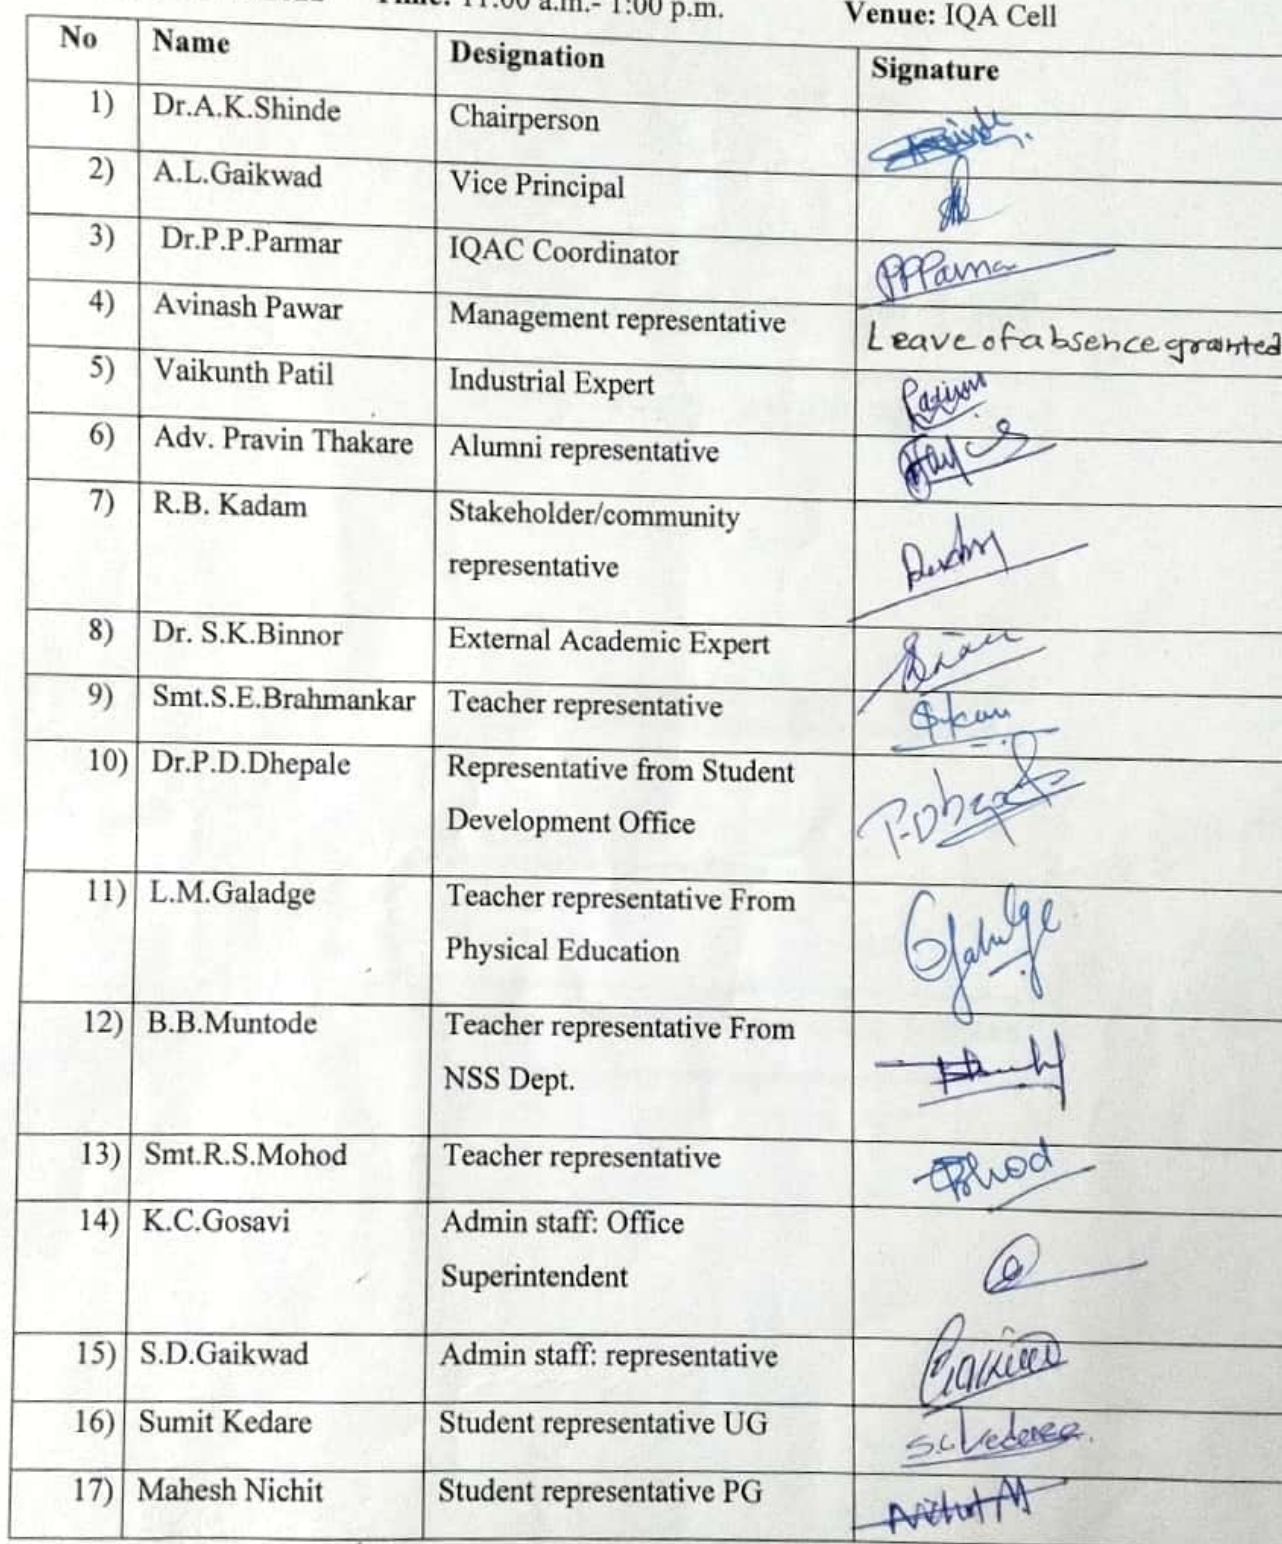 Time: 11:00 a.m.- 1:00 p.m. Venue: IQA Cell
No Name Designation Signature
1) Dr.A.K.Shinde Chairperson
2) A.L.Gaikwad Vice Principal
3) Dr.P.P.Parmar IQAC Coordinator PPParmar
4) Avinash Pawar Management representative Leave of absence granted
5) Vaikunth Patil Industrial Expert
6) Adv. Pravin Thakare Alumni representative
7) R.B. Kadam Stakeholder/community
representative
8) Dr. S.K.Binnor External Academic Expert
9) Smt.S.E.Brahmankar Teacher representative
10) Dr.P.D.Dhepale Representative from Student
Development Office
11) L.M.Galadge Teacher representative From
Physical Education
12) B.B.Muntode Teacher representative From
NSS Dept.
13) Smt.R.S.Mohod Teacher representative
14) K.C.Gosavi Admin staff: Office
Superintendent
15) S.D.Gaikwad Admin staff: representative
16) Sumit Kedare Student representative UG
17) Mahesh Nichit Student representative PG